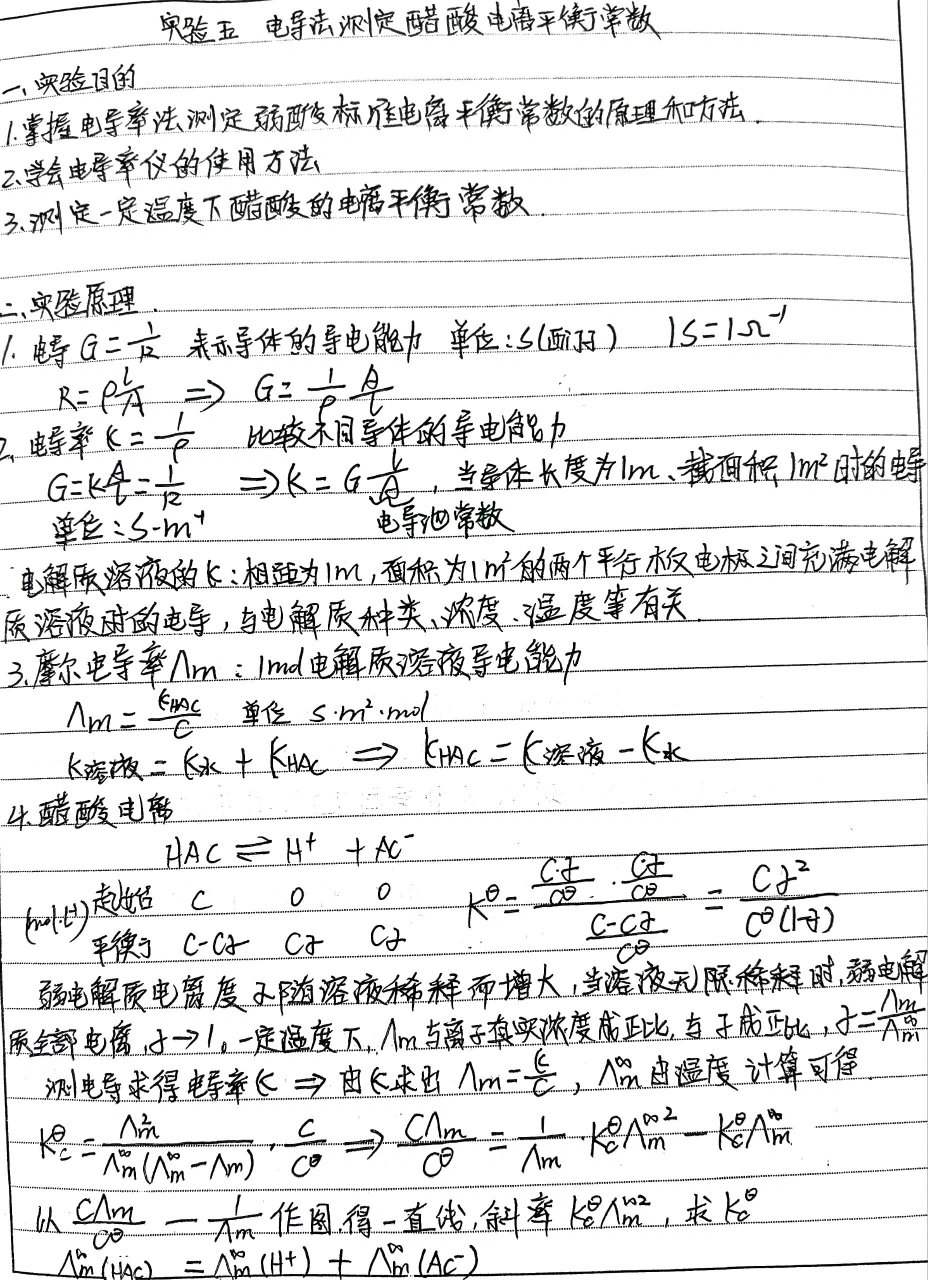 实验五 电导法测定醋酸电离平衡常数
一、实验目的
1.掌握电导率法测定弱酸标准电离平衡常数的原理和方法.
2.学会电导率仪的使用方法
3.测定一定温度下醋酸的电离平衡常数.
二、实验原理.
1.电导 G=1/R 表示导体的导电能力 单位:S(西门子) 1S=1Ω⁻¹
R=ρ l/A ⇒ G= 1/ρ A/l
2.电导率 κ=1/ρ 比较不同导体的导电能力
G=κ A/l = 1/R ⇒ κ=G l/A,当导体长度为1m、截面积1m²时的电导
单位:S·m⁻¹ 电导池常数
电解质溶液的κ:相距为1m,面积为1m²的两个平行板电极之间充满电解
质溶液时的电导,与电解质种类、浓度、温度等有关.
3.摩尔电导率Λm:1mol电解质溶液导电能力
Λm = κHAC/C 单位 S·m²·mol
κ溶液 = κ水 + κHAC ⇒ κHAC = κ溶液 - κ水
4.醋酸电离
HAC ⇌ H⁺ + AC⁻
(mol·L⁻¹) 起始 C 0 0 K^θ = (C·α/C^θ · Cα/C^θ)/((C-Cα)/C^θ) = Cα²/(C^θ(1-α))
平衡 C-Cα Cα Cα
弱电解质电离度α随溶液稀释而增大,当溶液无限稀释时,弱电解
质全部电离,α→1。一定温度下,Λm与离子真实浓度成正比,与α成正比,α=Λm/Λm^∞
测电导求得电导率κ ⇒ 由κ求出 Λm=κ/C,Λm^∞由温度计算可得.
Kc^θ = Λm²/(Λm^∞(Λm^∞-Λm)) · C/C^θ ⇒ CΛm/C^θ = 1/Λm · Kc^θ Λm^∞² - Kc^θ Λm^∞
以 CΛm/C^θ — 1/Λm 作图得一直线,斜率 Kc^θ Λm^∞²,求 Kc^θ
Λm^∞(HAC) = Λm^∞(H⁺) + Λm^∞(AC⁻)